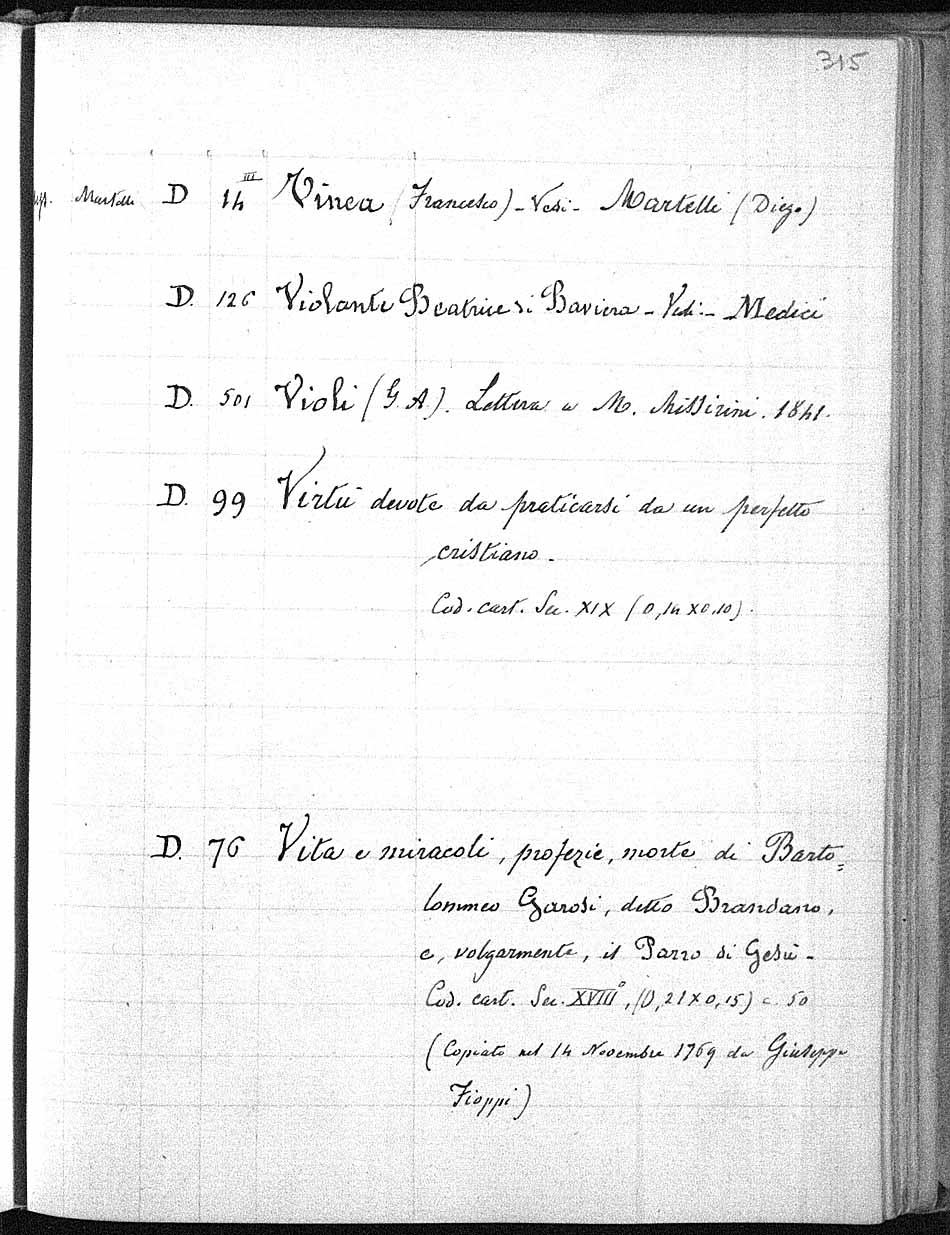 315
Martelli D 14 III Vinea (Francesco) - Vedi - Martelli (Diego)
D. 126 Violante Beatrice di Baviera - Vedi - Medici
D. 501 Violi (G. A.). Lettera a M. Missirini. 1841.
D. 99 Virtù devote da praticarsi da un perfetto
cristiano.
Cod. cart. Sec. XIX (0,14 x 0,10).
D. 76 Vita e miracoli, profezie, morte di Barto=
lommeo Garosi, detto Brandano,
e, volgarmente, il Pazzo di Gesù -
Cod. cart. Sec. XVIII°, (0,21 x 0,15) c. 50
(Copiato nel 14 Novembre 1769 da Giuseppe
Fioppi)